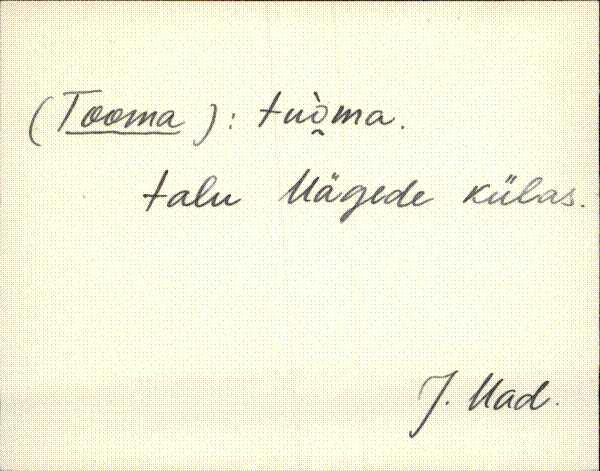 (Tooma): tuò̭ma.
talu Mägede külas.
J. Mad.